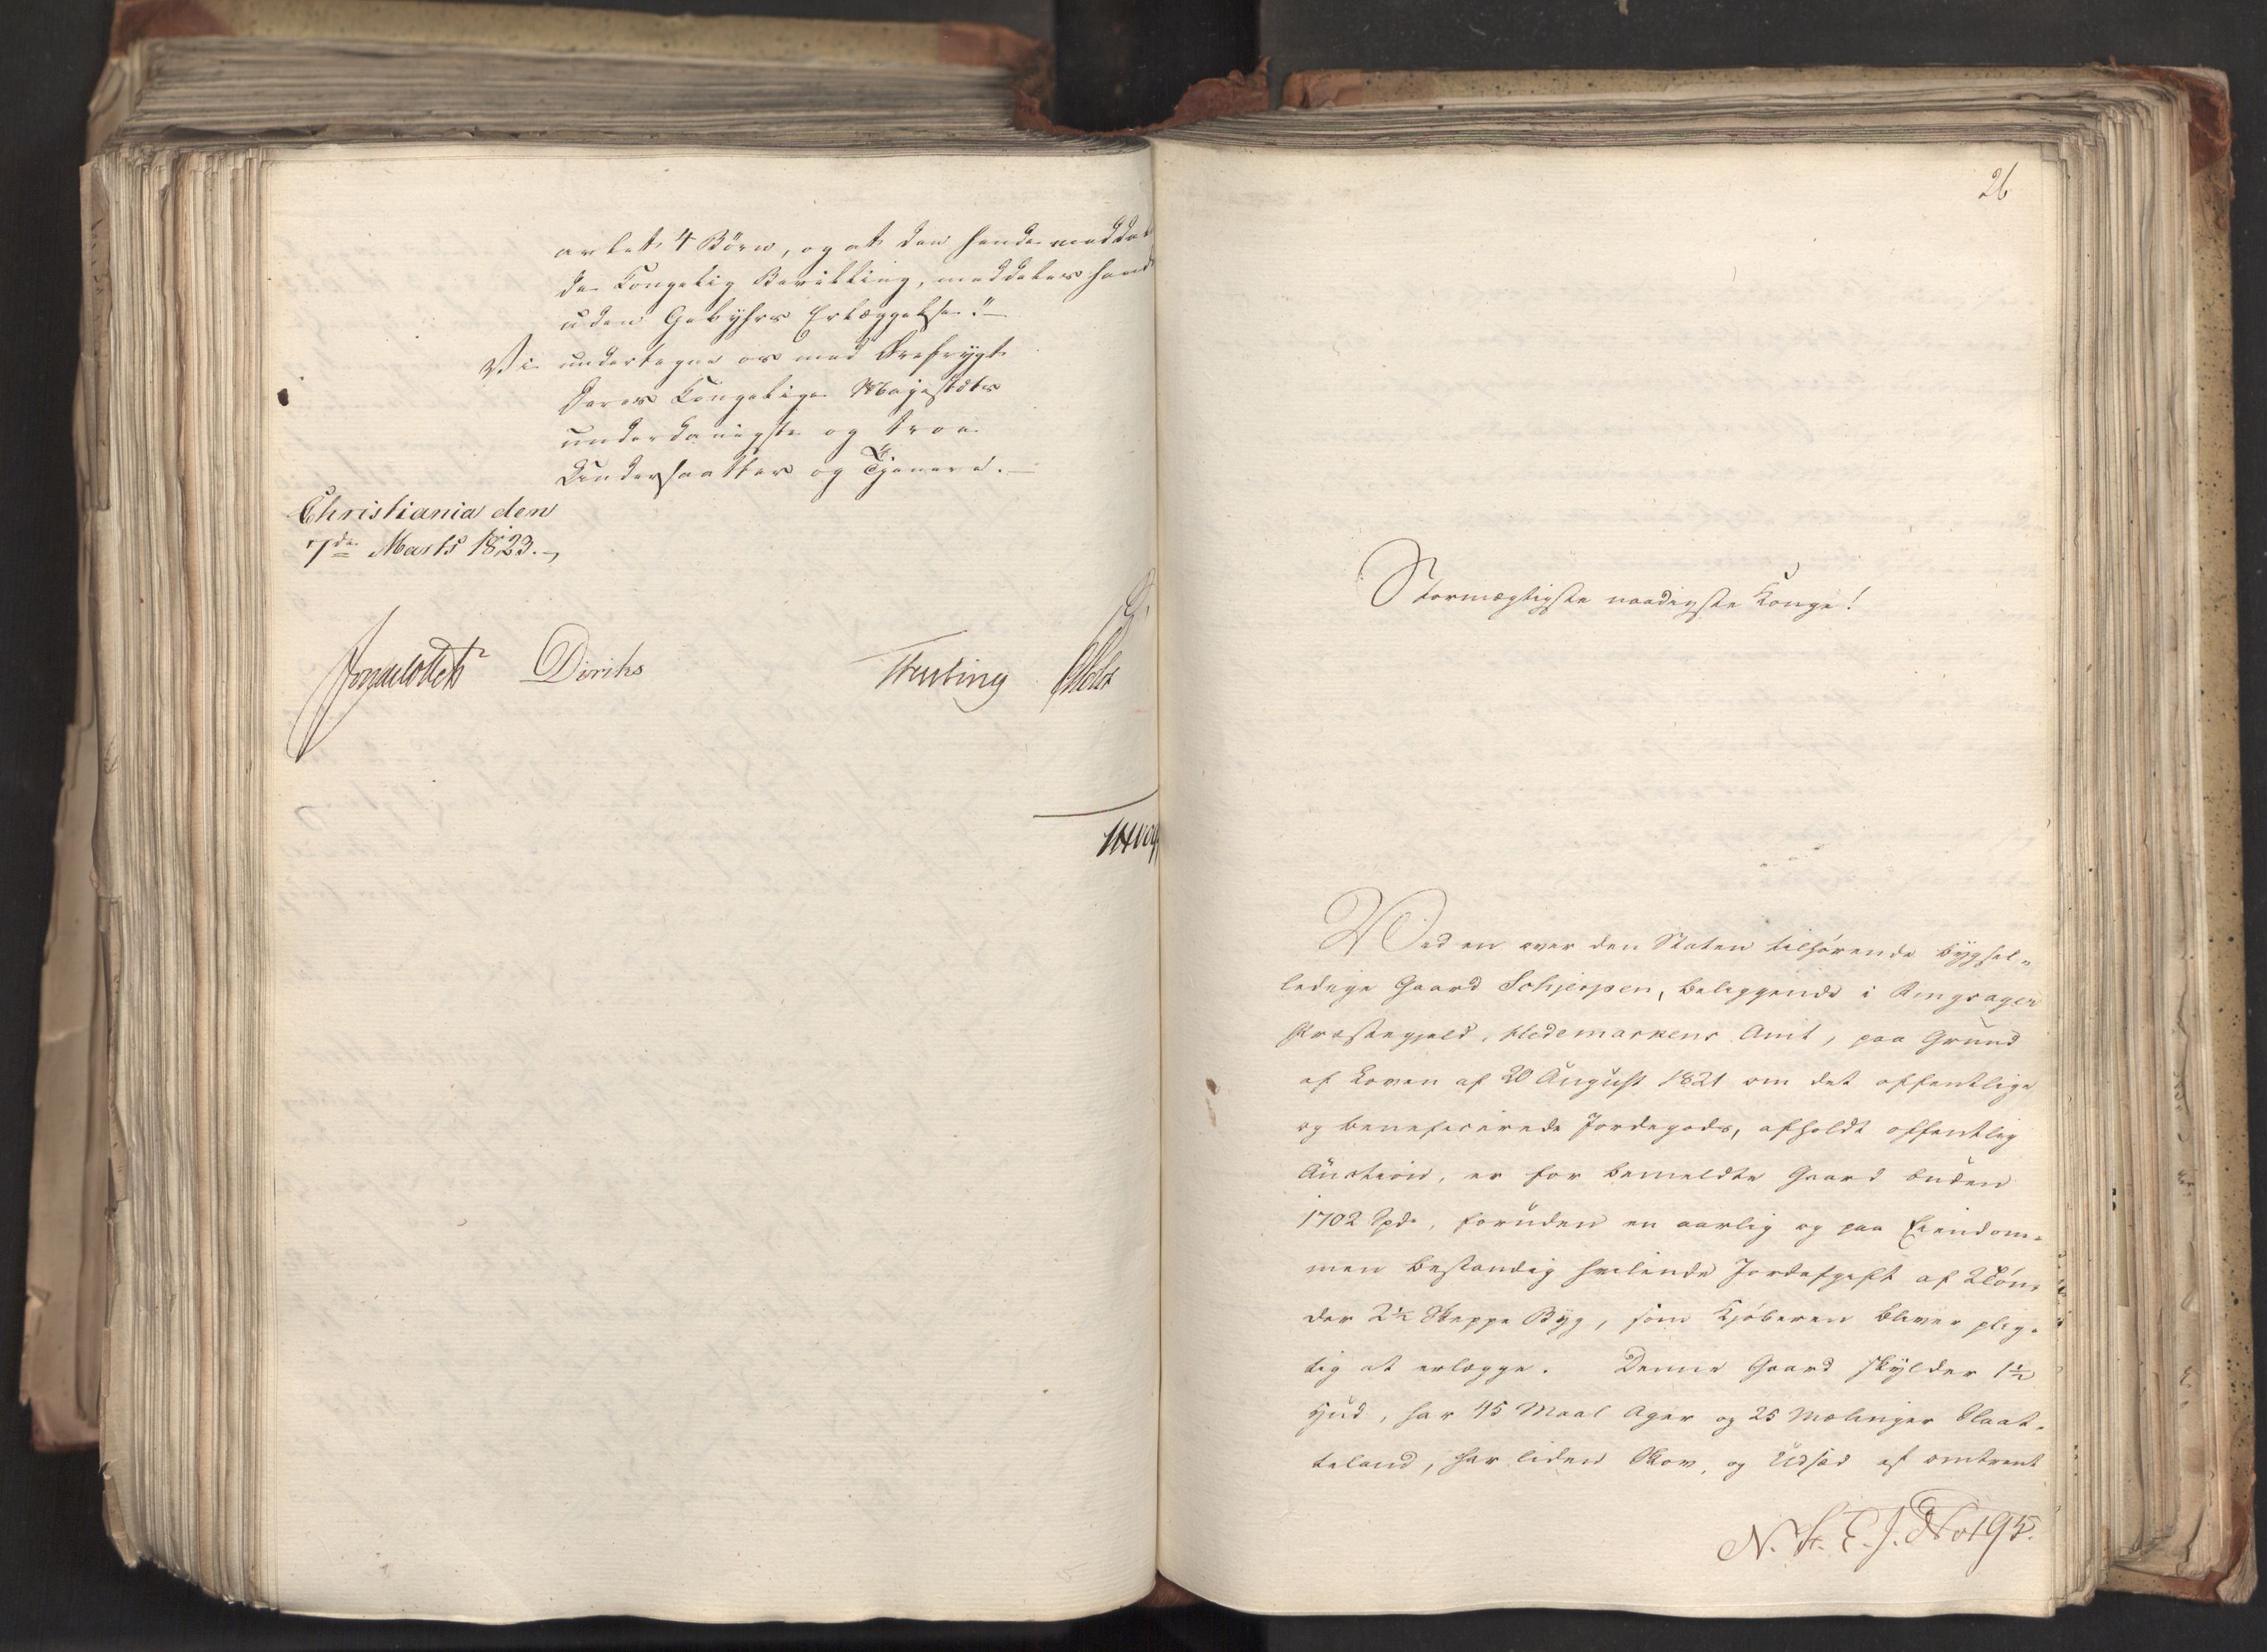 avlet 4 Börn, og at den hende medde⸗
de Kongelig Bevilling, meddeles hende
uden Gebyhrs Erlæggelse."—
Vi undertegne os med Ærefrygt
Deres Kongelige Majestæts
underdanigste og troe
Undersaatter og Tjenere.—
Christiania den
7de Marts 1823.—
Diriks
26
Stormægtigste naadigste Konge!
Ved en over den Staten tilhørende bygsel⸗
ledige Gaard Schjerpen, beliggende i Ringsager
Præstegjeld, Hedemarkens Amt, paa Grund
af Loven af 20 August 1821 om det offentlige
og beneficerede Jordegods, afholdt offentlig
Auction, er for bemeldte Gaard buden
1702 Spd., foruden en aarlig og paa Eiendom⸗
men bestandig hvilende Jordafgift af 2 Tøn⸗
der 2½ Skeppe Byg, som Kjøberen bliver plig⸗
tig at erlægge. Denne Gaard skylder 1½
Hud, har 45 Maal Ager og 25 Mælinger Slaat⸗
teland, har liden Skov, og Udsæd af omtrent
N. St. E. J. No 195.